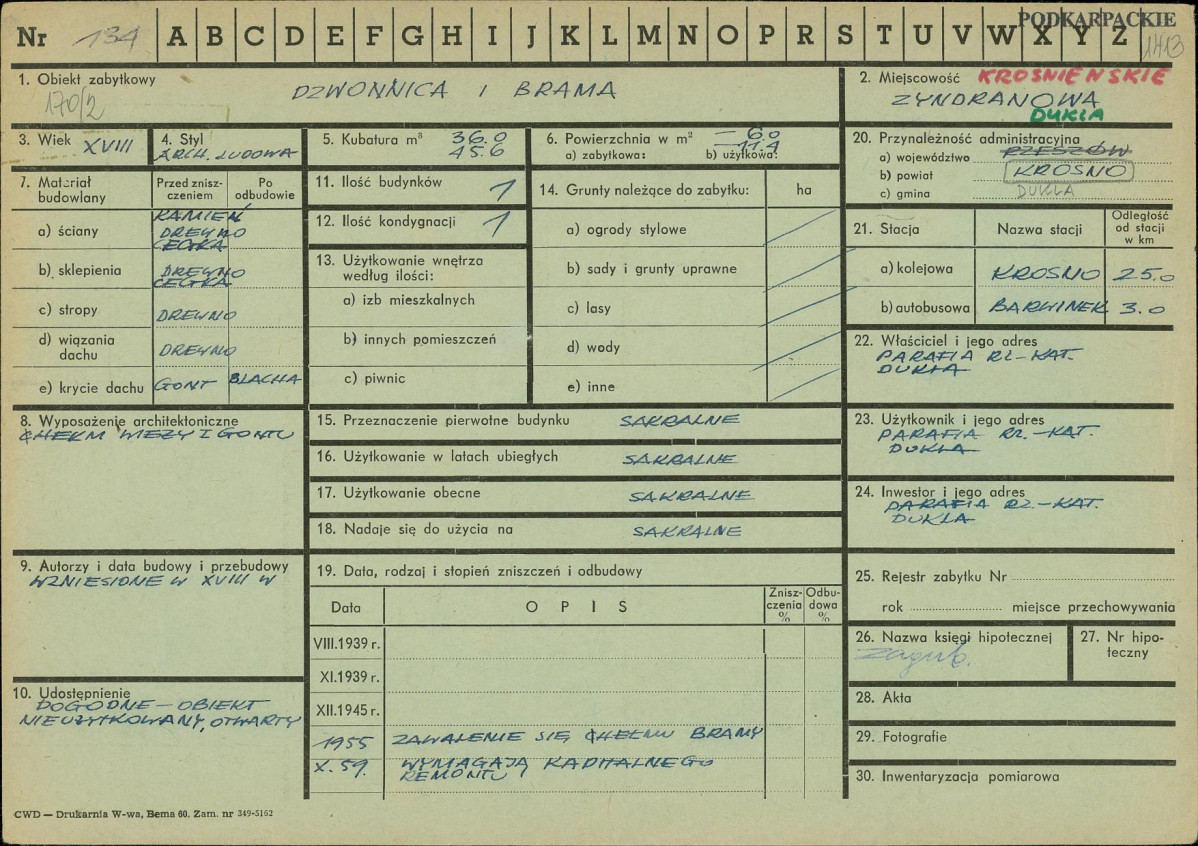 PODKARPACKIE
Nr 134 A B C D E F G H I J K L M N O P R S T U V W X Y Z 1413
1. Obiekt zabytkowy
170/2
DZWONNICA I BRAMA
2. Miejscowość KROŚNIEŃSKIE
ZYNDRANOWA
DUKLA
3. Wiek XVIII
4. Styl
ARCH. LUDOWA
5. Kubatura m³ 36.0
45.6
6. Powierzchnia w m² — 6.0
— 11.4
a) zabytkowa: b) użytkowa:
20. Przynależność administracyjna
a) województwo RZESZÓW
b) powiat KROSNO
c) gmina DUKLA
7. Materiał budowlany
Przed zniszczeniem
Po odbudowie
a) ściany KAMIEŃ
DREWNO
CEGŁA
b) sklepienia DREWNO
CEGŁA
c) stropy DREWNO
d) wiązania dachu DREWNO
e) krycie dachu GONT BLACHA
11. Ilość budynków 1
12. Ilość kondygnacji 1
13. Użytkowanie wnętrza
według ilości:
a) izb mieszkalnych
b) innych pomieszczeń
c) piwnic
14. Grunty należące do zabytku: ha
a) ogrody stylowe
b) sady i grunty uprawne
c) lasy
d) wody
e) inne
21. Stacja Nazwa stacji Odległość
od stacji
w km
a) kolejowa KROSNO 25.0
b) autobusowa BARWINEK 3.0
22. Właściciel i jego adres
PARAFIA RZ.-KAT.
DUKLA
8. Wyposażenie architektoniczne
CHEŁM WIEŻY I GONTU
15. Przeznaczenie pierwotne budynku SAKRALNE
16. Użytkowanie w latach ubiegłych SAKRALNE
17. Użytkowanie obecne SAKRALNE
18. Nadaje się do użycia na SAKRALNE
23. Użytkownik i jego adres
PARAFIA RZ.-KAT.
DUKLA
24. Inwestor i jego adres
PARAFIA RZ.-KAT.
DUKLA
9. Autorzy i data budowy i przebudowy
WZNIESIONE W XVIII W
10. Udostępnienie
DOGODNE — OBIEKT
NIEUŻYTKOWANY, OTWARTY
19. Data, rodzaj i stopień zniszczeń i odbudowy
Data OPIS Zniszczenia % Odbudowa %
VIII.1939 r.
XI.1939 r.
XII.1945 r.
1955 ZAWALENIE SIĘ CHEŁMU BRAMY
X. 59. WYMAGAJĄ KAPITALNEGO
REMONTU
25. Rejestr zabytku Nr
rok miejsce przechowywania
26. Nazwa księgi hipotecznej
zagub.
27. Nr hipoteczny
28. Akta
29. Fotografie
30. Inwentaryzacja pomiarowa
CWD — Drukarnia W-wa, Bema 60. Zam. nr 349-5162